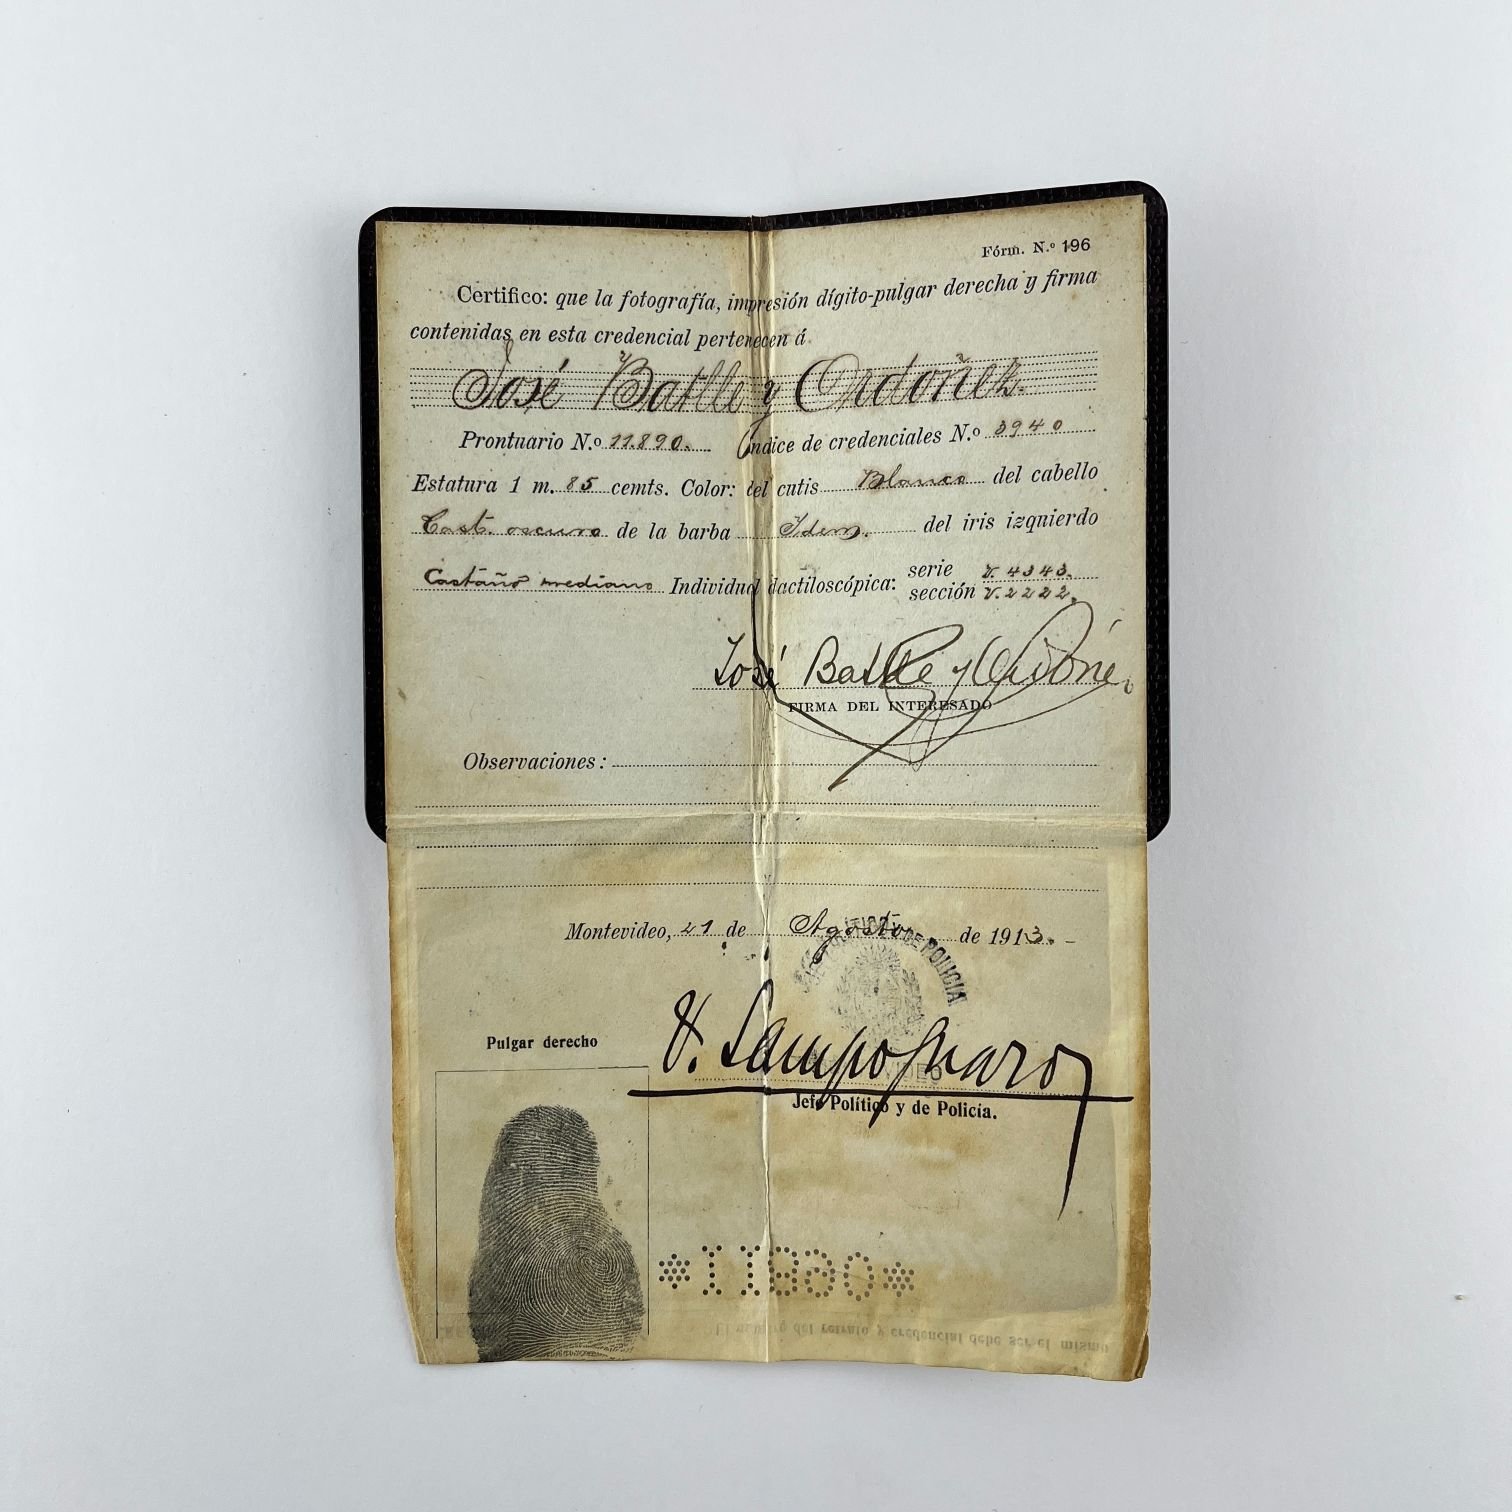 Fórm. N.º 196
Certifico: que la fotografía, impresión dígito-pulgar derecha y firma
contenidas en esta credencial pertenecen á
José Batlle y Ordoñez.
Prontuario N.º 11.890. Índice de credenciales N.º 3940
Estatura 1 m. 85 cemts. Color: del cutis Blanco del cabello
Cast. oscuro de la barba Idem. del iris izquierdo
Castaño mediano Individual dactiloscópica: serie V. 4343.
sección V. 2222.
José Batlle y Ordóñe
FIRMA DEL INTERESADO
Observaciones:
Montevideo, 21 de Agosto de 1913.-
DE POLICIA
V. Sampognaro
Jefe Político y de Policía.
Pulgar derecho
*11890*
El número del retrato y credencial debe ser el mismo